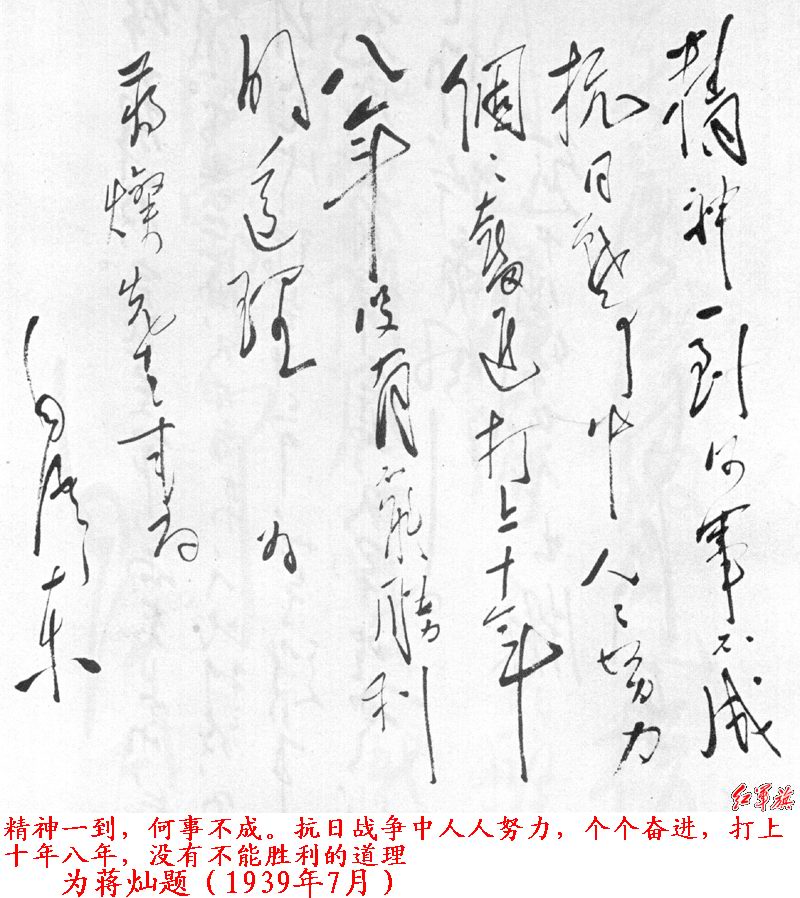 精神一到何事不成
抗日戰爭中人々努力
個々奮進打上十年
八年没有不能勝利
的道理 为
蒋燦先生
毛澤东
红军旗
精神一到，何事不成。抗日战争中人人努力，个个奋进，打上
十年八年，没有不能胜利的道理
为蒋灿题（1939年7月）